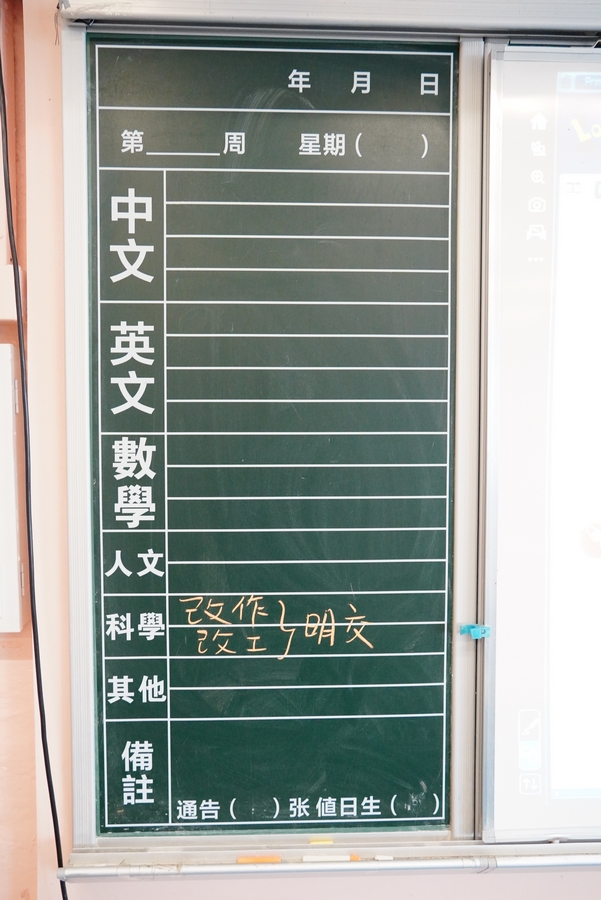 年 月 日
第______周 星期（ ）
中文
英文
數學
人文
科學
改作
改工 } 明交
其他
備註
通告（ ）张 值日生（ ）